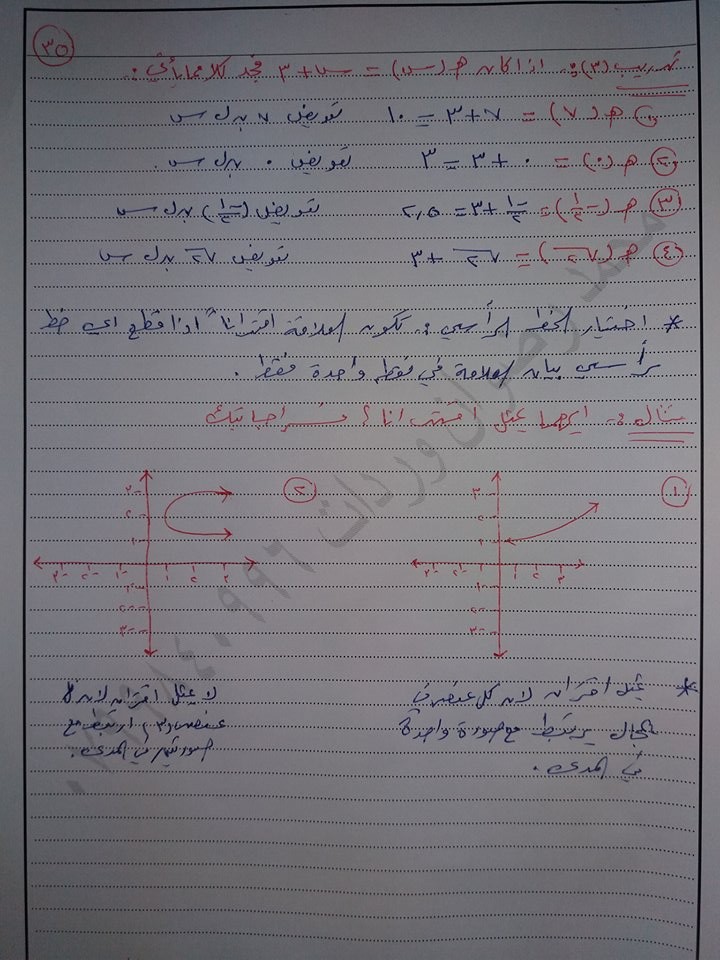 ٣٥
تدريب (٣): اذا كان هـ (س) = س + ٣ فجد كلا مما يأتي :
١ هـ (٧) = ٧ + ٣ = ١٠ تعويض ٧ بدل س
٢ هـ (٠) = ٠ + ٣ = ٣ تعويض ٠ بدل س .
٣ هـ (-١/٢) = -١/٢ + ٣ = ٢,٥ تعويض (-١/٢) بدل س
٤ هـ (√٢) = √٢ + ٣ تعويض √٢ بدل س
* اختبار الخط الرأسي : تكون العلاقة اقتراناً اذا قطع اي خط
رأسي بيان العلاقة في نقطة واحدة فقط .
مثال :- ايهما يمثل اقتراناً ؟ فسر اجابتك
١
٣ ٢ ١
-٣ -٢ -١ ١ ٢ ٣
-١ -٢ -٣
٢
٣ ٢ ١
-٣ -٢ -١ ١ ٢ ٣
-١ -٢ -٣
* يمثل اقتران لان كل عنصر في
المجال يرتبط مع صورة واحدة
في المدى .
لا يمثل اقتران لان
عنصر (٣) ارتبط مع
صورتين في المدى .
وردات